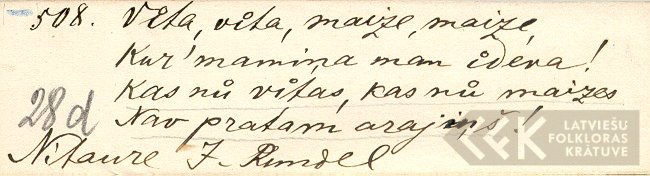 508. Vĩta, vĩta, maize, maize,
Kur' mamiņa man ĩdeva!
Kas nũ vĩtas, kas nũ maizes
28d Nav pratam arajiņš!
Nitaure J. Rundel
LATVIEŠU
FOLKLORAS
KRĀTUVE